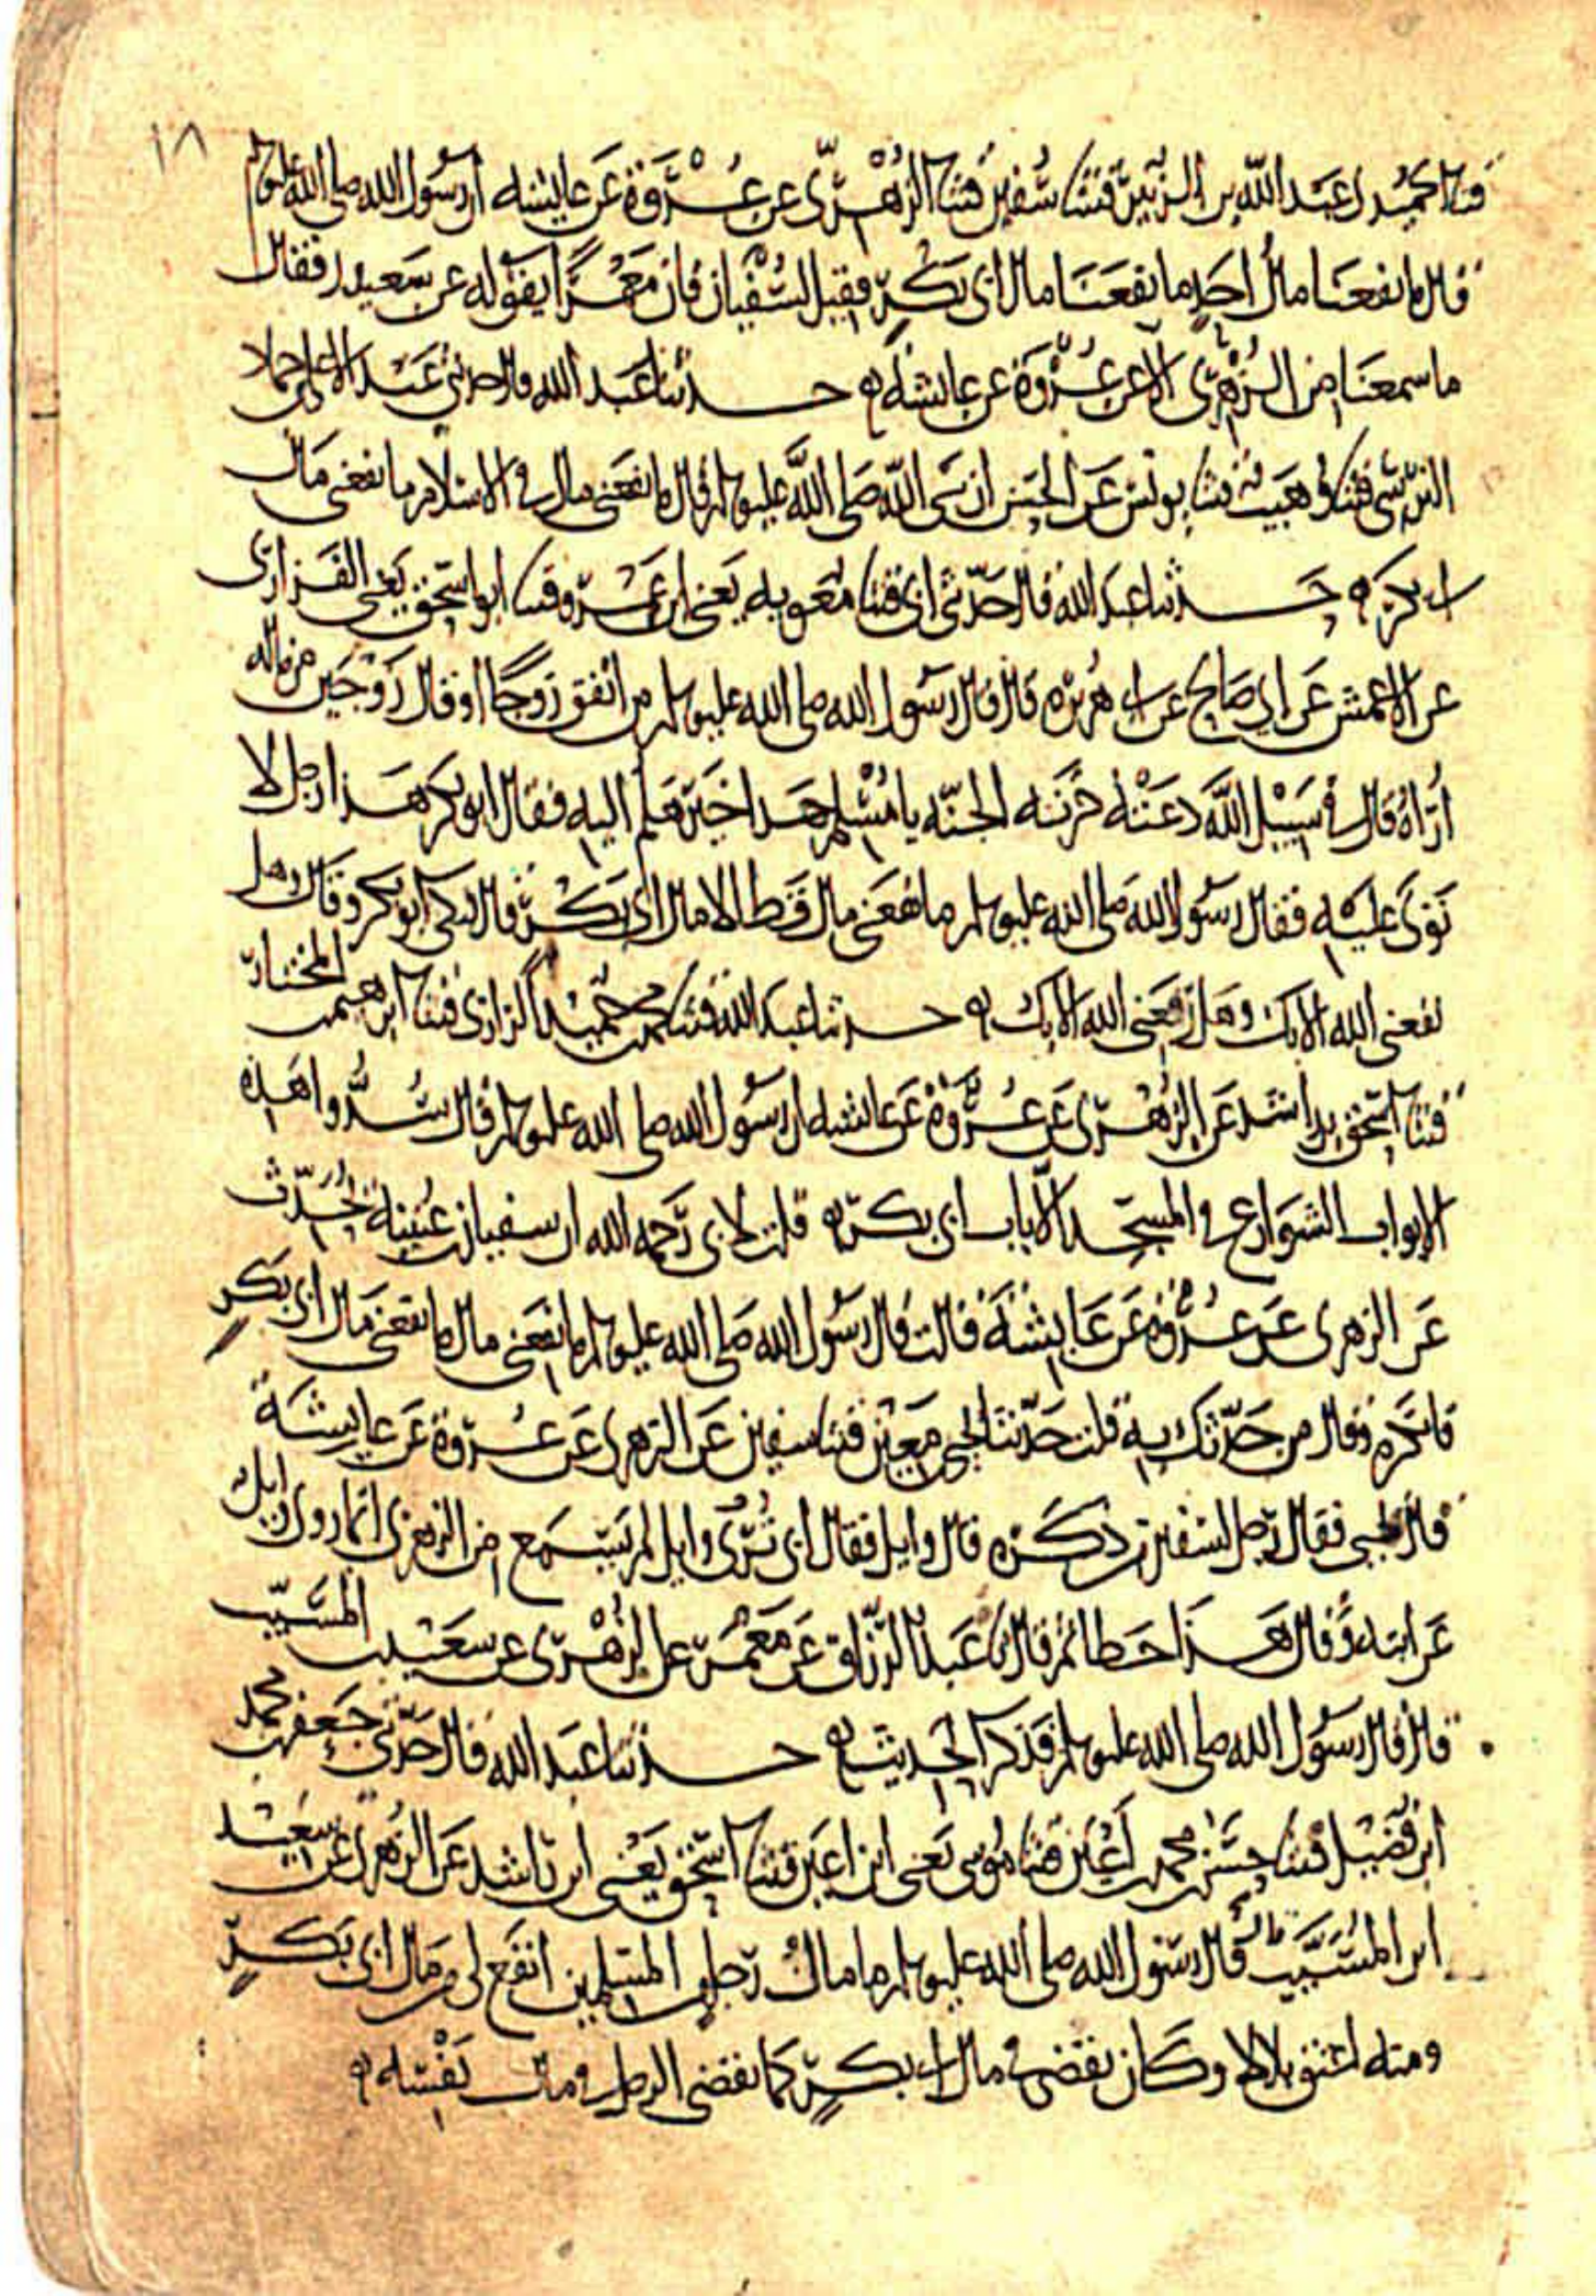 ١٨
قثنا الحميدي عبد الله بن الزبير قثنا سفين قثنا الزهري عن عروة عن عايشه ان رسول الله صلى الله عليه وسلم
قال ما نفعنا مال احد ما نفعنا مال ابى بكر فقيل لسفيان فان معمرا يقوله عن سعيد فقال
ما سمعنا من الزهري الا عن عروة عن عايشه حدثنا عبد الله قال حدثني عبد الاعلى بن حماد
النرسي قثنا وهيب قثنا يونس عن الحسن ان نبى الله صلى الله عليه وسلم قال ما نفعني مال في الاسلام ما نفعني مال
ابى بكر حدثنا عبد الله قال حدثني ابى قثنا معويه يعني ابن عمرو قثنا ابو اسحق يعني الفزاري
عن الاعمش عن ابي صالح عن ابى هريره قال قال رسول الله صلى الله عليه وسلم من انفق زوجا او قال زوجين من ماله
أراه قال في سبيل الله دعته خزنه الجنه يا مسلم هذا خير هلم اليه فقال ابو بكر هذا رجل لا
توى عليه فقال رسول الله صلى الله عليه وسلم ما نفعني مال قط الا مال ابى بكر قال فبكى ابو بكر وقال وهل
نفعني الله الا بك وهل نفعني الله الا بك حدثنا عبد الله قثنا محمد بن حميد الرازي قثنا ابرهيم بن المختار
قثنا اسحق بن راشد عن الزهري عن عروة عن عايشه ان رسول الله صلى الله عليه وسلم قال سدوا هذه
الابواب الشوارع في المسجد الا باب ابى بكر قلت لابى رحمه الله ان سفيان بن عيينة يحدث
عن الزهري عن عروة عن عايشة قالت قال رسول الله صلى الله عليه وسلم ما نفعني مال ما نفعني مال ابى بكر
فانكره وقال من حدثك به قلت حدثنا يحيى بن معين قثنا سفين عن الزهري عن عروة عن عايشة
قال يحيى فقال رجل لسفين من ذكره قال وايل فقال ابى نرى وايل لم يسمع من الزهري انما روى وايل
عن ابنه وقال هذا خطا ثم قال نا عبد الرزاق عن معمر عن الزهري عن سعيد بن المسيب
قال قال رسول الله صلى الله عليه وسلم فذكر الحديث حدثنا عبد الله قال حدثني جعفر بن محمد
ابن فضيل قثنا حسن بن محمد بن اعين قثنا موسى يعني ابن اعين قثنا اسحق يعني ابن راشد عن الزهري عن سعيد
ابن المسيب قال قال رسول الله صلى الله عليه وسلم ما مال رجل من المسلمين انفع لى من مال ابى بكر
ومنه اعتق بلالا وكان يقضى في مال ابى بكر كما يقضى الرجل في مال نفسه